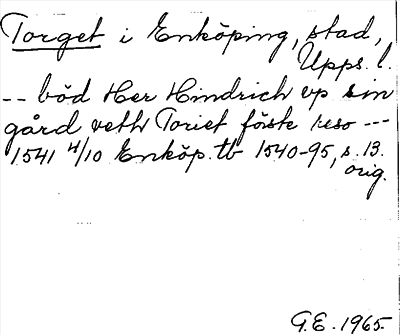 Torget i Enköping, stad,
Upps. l.
-- böd Her Hindrich vp sin
gård veth Toriet förste reso ---
1541 4/10 Enköp. tb 1540-95, s. 13.
orig.
G.E. 1965.